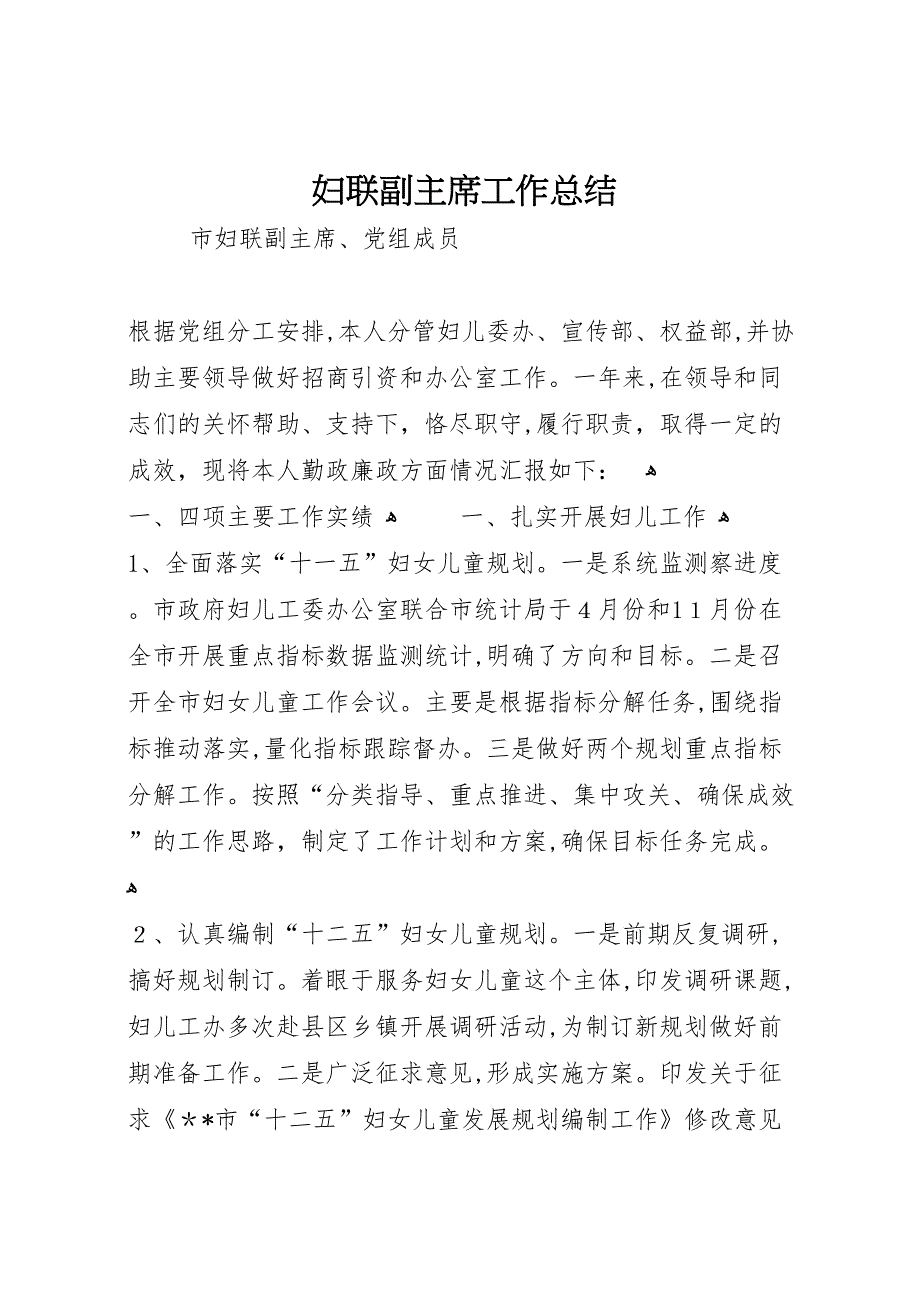 妇联副主席工作总结
市妇联副主席、党组成员
根据党组分工安排,本人分管妇儿委办、宣传部、权益部,并协
助主要领导做好招商引资和办公室工作。一年来,在领导和同
志们的关怀帮助、支持下，恪尽职守,履行职责，取得一定的
成效，现将本人勤政廉政方面情况汇报如下： ﻫ
一、四项主要工作实绩 ﻫ 一、扎实开展妇儿工作 ﻫ
1、全面落实“十一五”妇女儿童规划。一是系统监测察进度
。市政府妇儿工委办公室联合市统计局于４月份和１１月份在
全市开展重点指标数据监测统计,明确了方向和目标。二是召
开全市妇女儿童工作会议。主要是根据指标分解任务,围绕指
标推动落实,量化指标跟踪督办。三是做好两个规划重点指标
分解工作。按照“分类指导、重点推进、集中攻关、确保成效
”的工作思路，制定了工作计划和方案,确保目标任务完成。
ﻫ
２、认真编制“十二五”妇女儿童规划。一是前期反复调研,
搞好规划制订。着眼于服务妇女儿童这个主体,印发调研课题,
妇儿工办多次赴县区乡镇开展调研活动,为制订新规划做好前
期准备工作。二是广泛征求意见,形成实施方案。印发关于征
求《＊*市“十二五”妇女儿童发展规划编制工作》修改意见